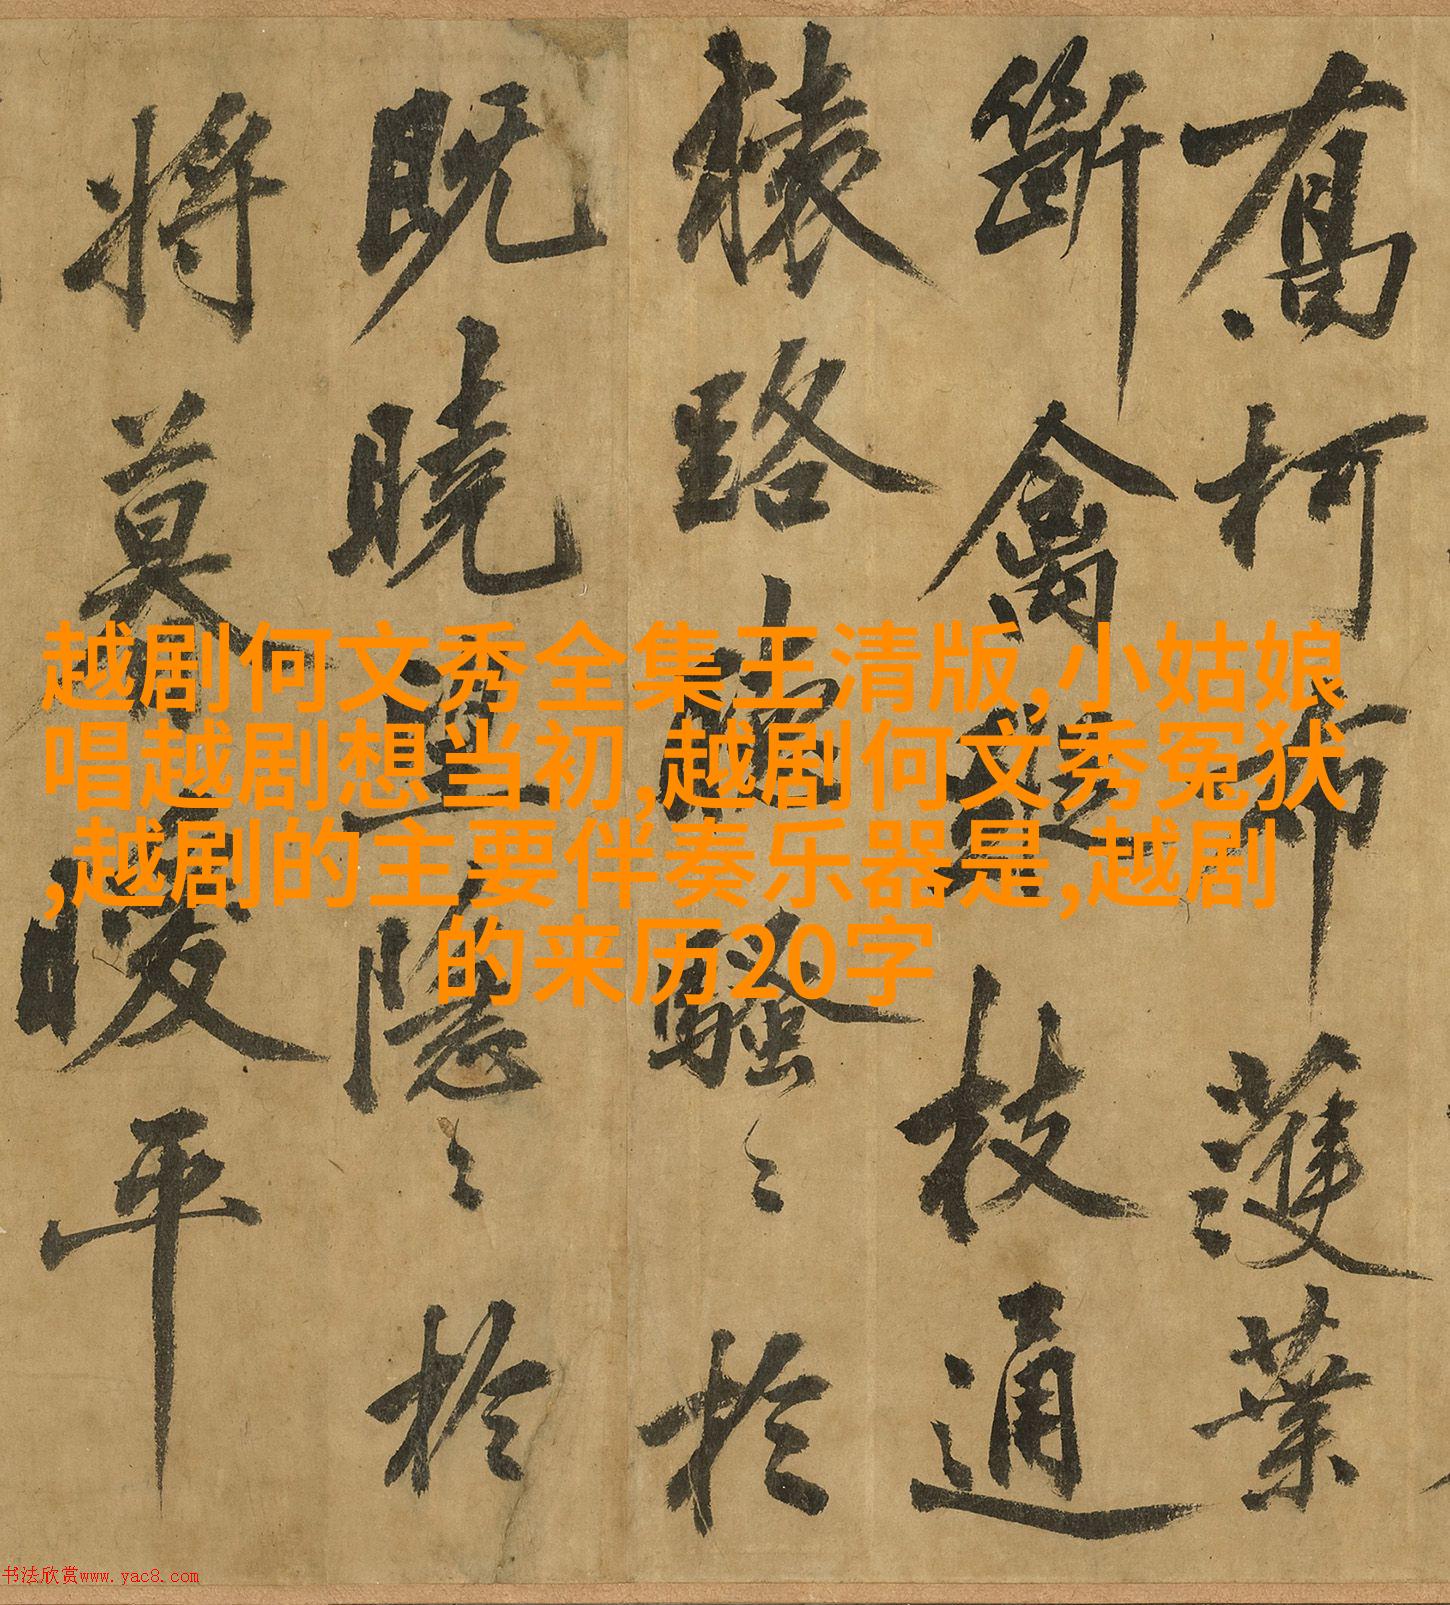 柯布濩葉
斷禽枝通
猿路騷〻於
既曉隱〻於
將莫暖平
越剧何文秀全集王清版,小姑娘
唱越剧想当初,越剧何文秀冤状
,越剧的主要伴奏乐器是,越剧
的来历20字
书法欣赏www.yac8.com